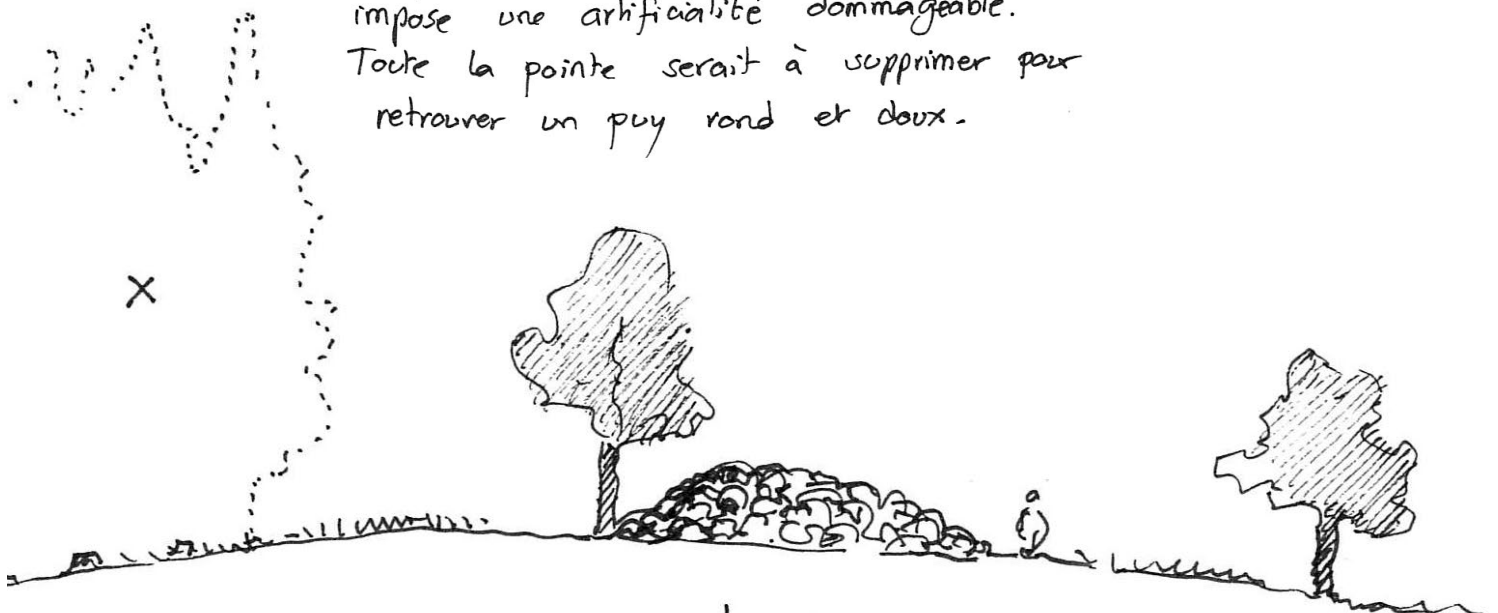 impose une artificialité dommageable.
Toute la pointe serait à supprimer pour
retrouver un puy rond et doux.